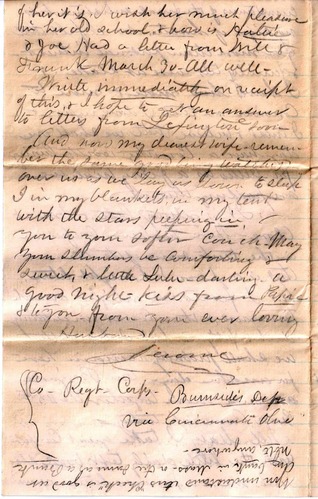 of her it is. I wish her much pleasure
in her old school, & how is Hattie
& Joe. Had a letter from Will &
Frank. March 30. All well-
Write immediately on receipt
of this, & hope to get an answer
to letters from Lexington soon
And now my dearest wife remem-
ber the same God being watches
over us as we lay us down to sleep
I in my blankets in my tent
with the stars peeping in
you to your softer couch. May
your slumbers be comforting &
sweet & little Lulu-darling a
good night kiss from Papa
& to you from your ever loving
Husband
Jerome
Co- Regt- Corps- Burnside's Dep
Via Cincinnati Ohio
You understand this check is good at
any bank in Mass- in the same as a Bank
Bill anywhere-